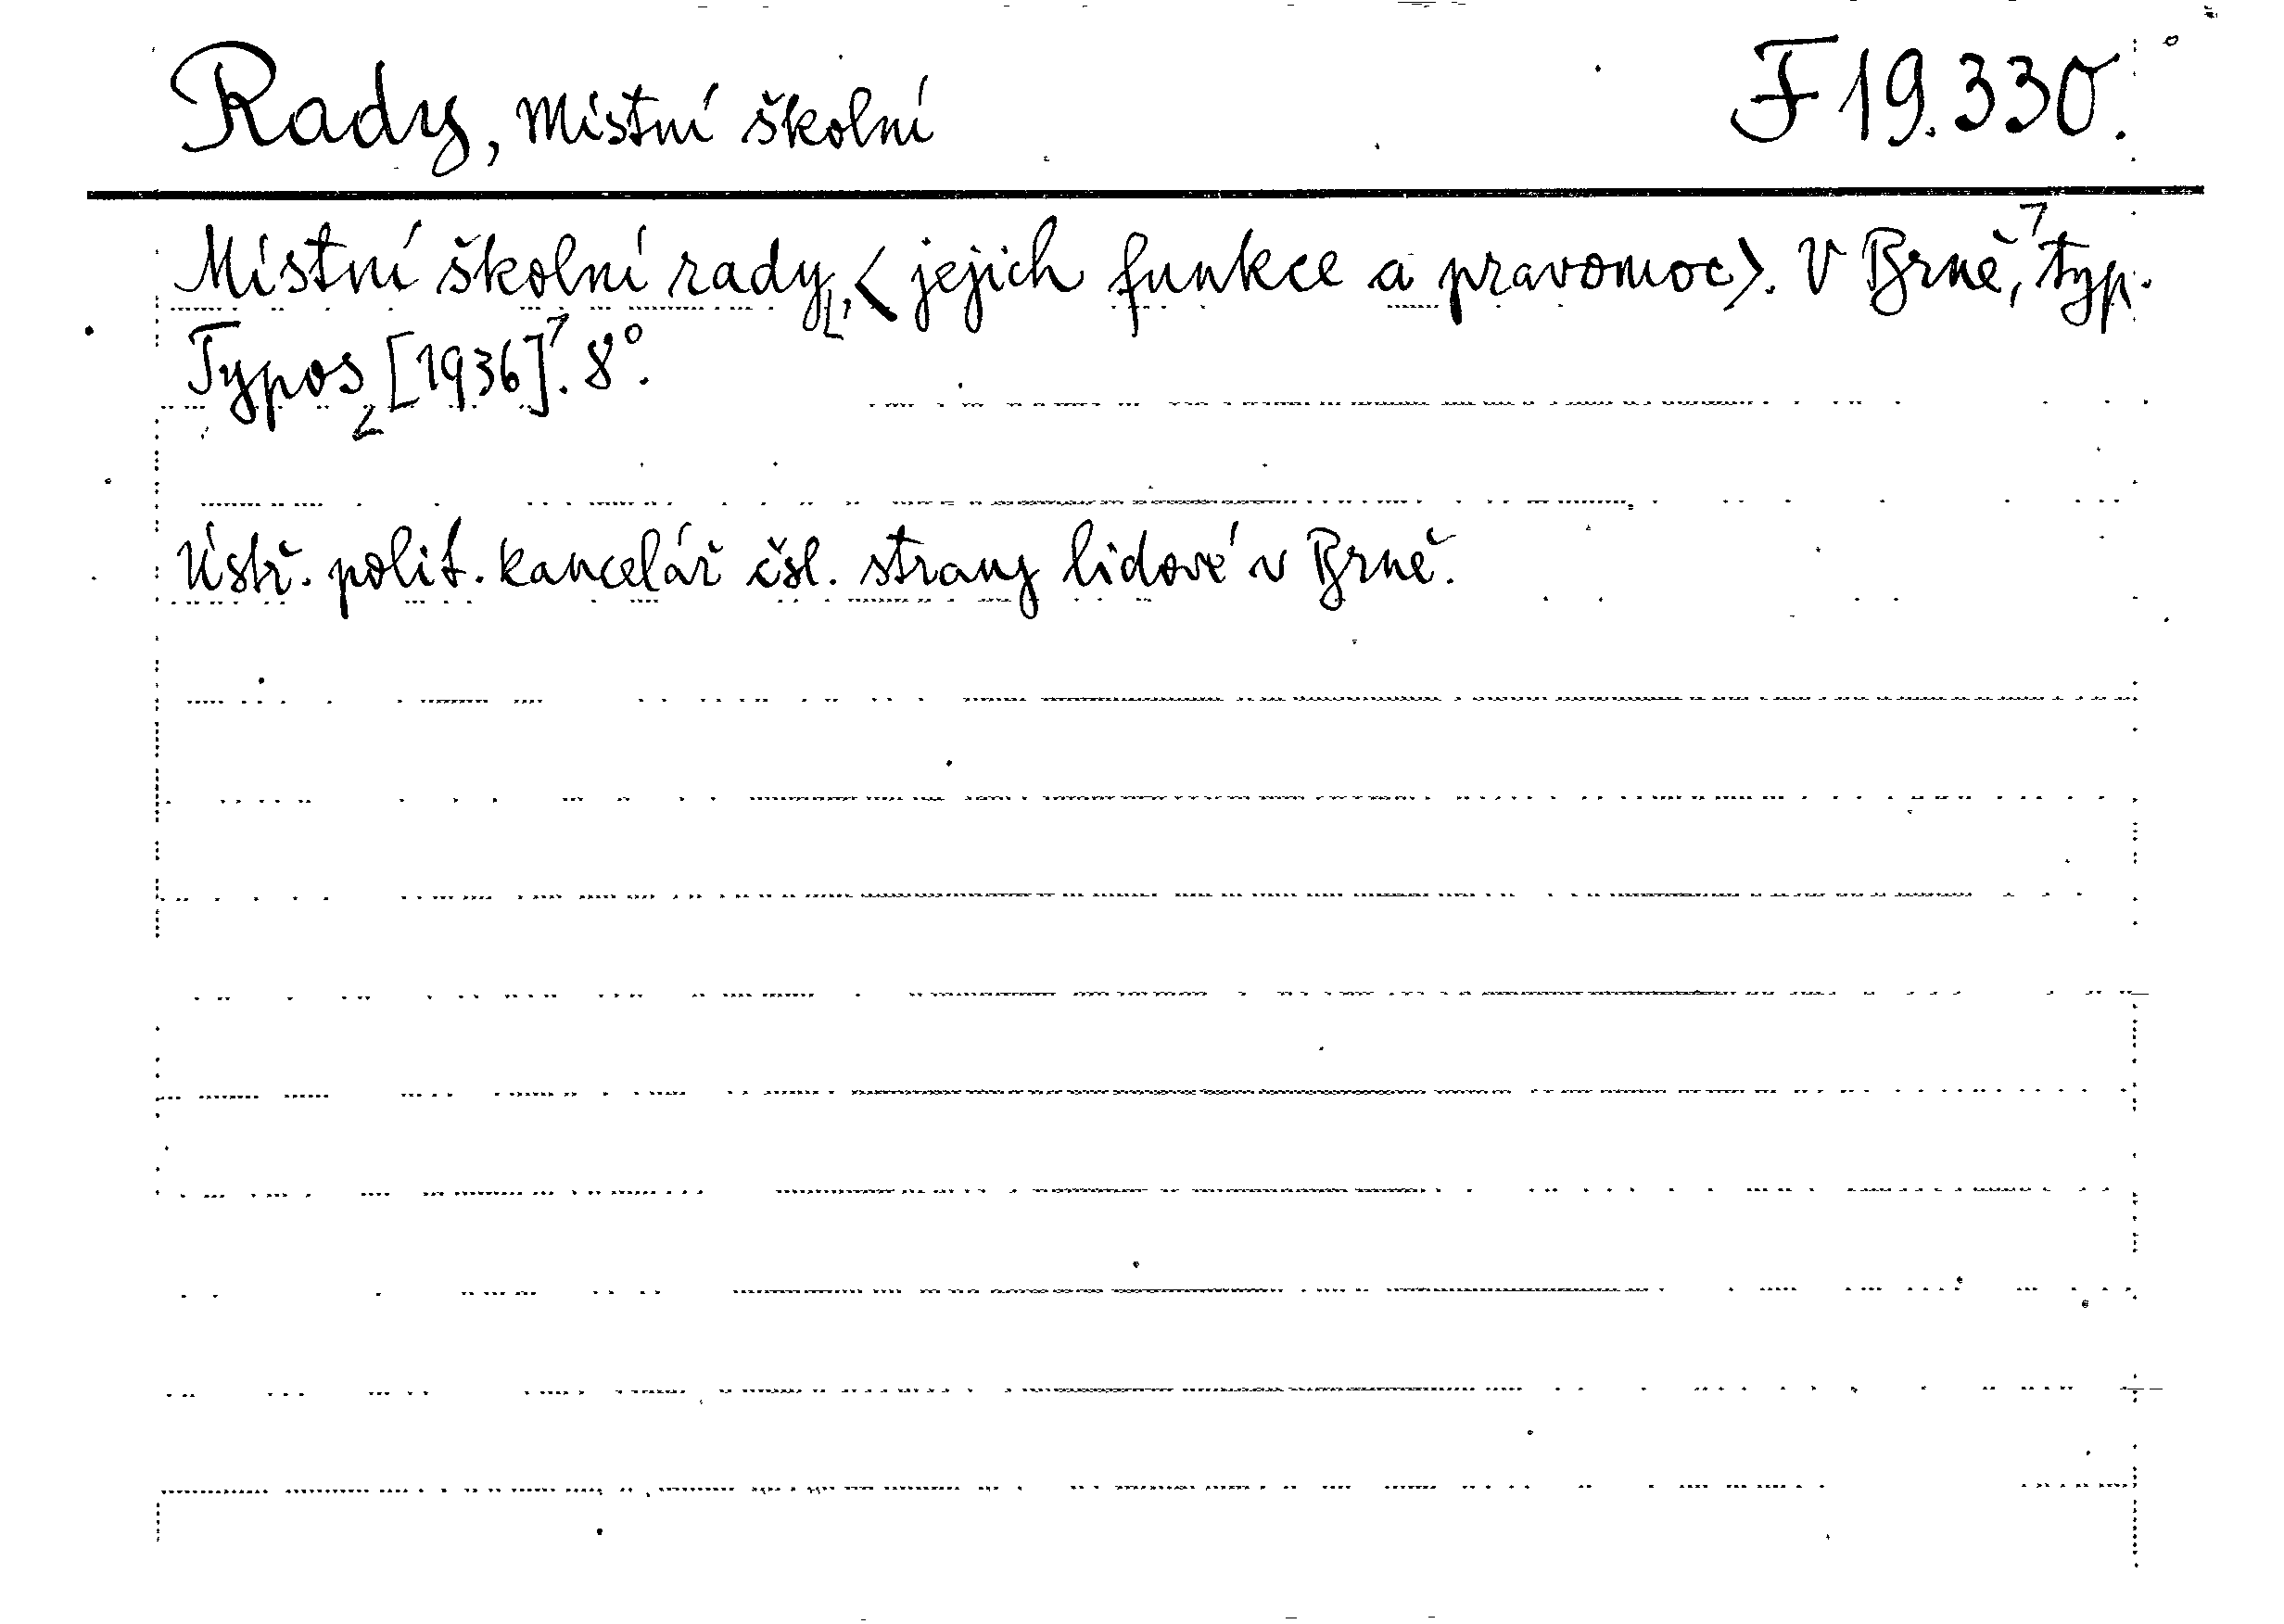 Rady, místní školní F 19.330.
Místní školní rady, < jejich funkce a pravomoc>. V Brně, typ.
Typos [1936]. 8°.
Ústř. polit. kancelář čsl. strany lidové v Brně.